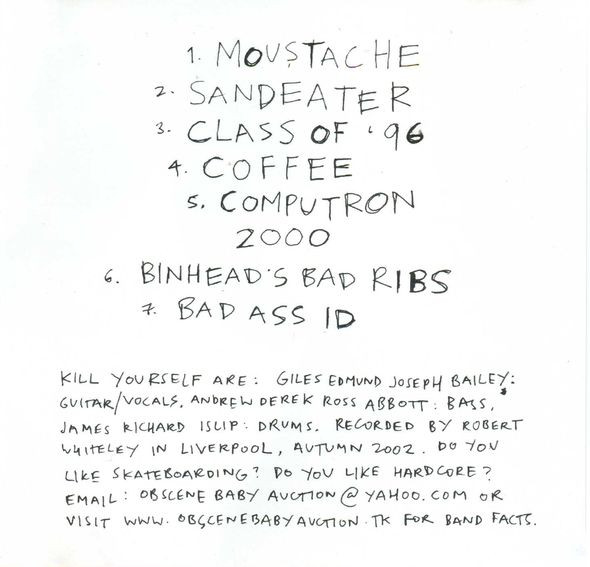 1. MOUSTACHE
2. SANDEATER
3. CLASS OF '96
4. COFFEE
5. COMPUTRON
2000
6. BINHEAD'S BAD RIBS
7. BAD ASS ID
KILL YOURSELF ARE: GILES EDMUND JOSEPH BAILEY:
GUITAR/VOCALS, ANDREW DEREK ROSS ABBOTT: BASS,
JAMES RICHARD ISLIP: DRUMS. RECORDED BY ROBERT
WHITELEY IN LIVERPOOL, AUTUMN 2002. DO YOU
LIKE SKATEBOARDING? DO YOU LIKE HARDCORE?
EMAIL: OBSCENE BABY AUCTION@YAHOO.COM OR
VISIT WWW.OBSCENEBABYAUCTION.TK FOR BAND FACTS.